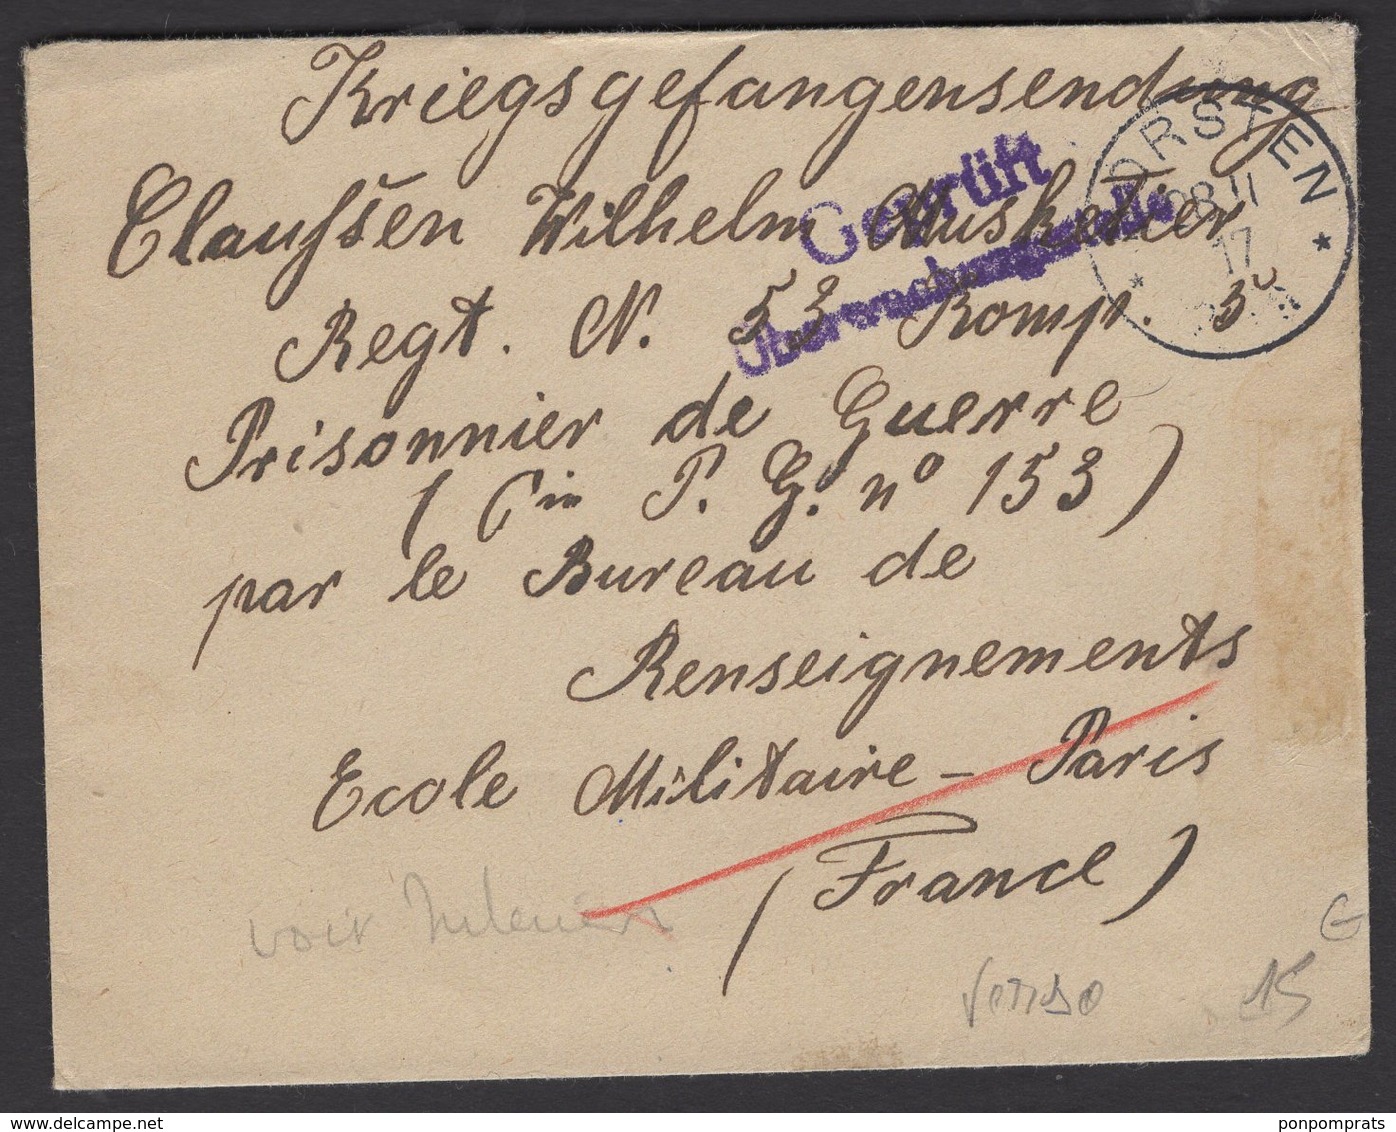 Kriegsgefangensendung
Claufsen Wilhelm Musketier
Regt. N. 53 Komp. 3
Prisonnier de Guerre
(Cie P. G. nº 153)
par le Bureau de
Renseignements
Ecole Militaire - Paris
(France)
Geprüft
Überwachungsstelle
DORSTEN
17
voir Interieur
verso
15
www.delcampe.net
ponpomprats